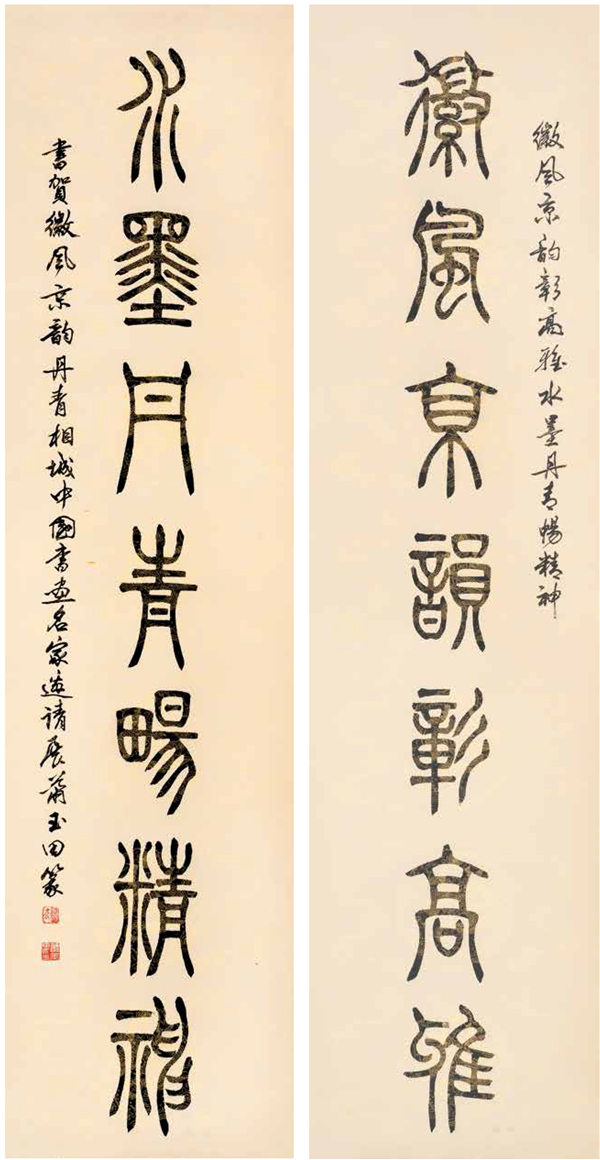 徽風京韵彰高雅水墨丹青暢精神
徽風京韻彰高雅
水墨丹青暢精神
書賀徽風京韵丹青相城中國書畫名家邀請展蕭玉田篆